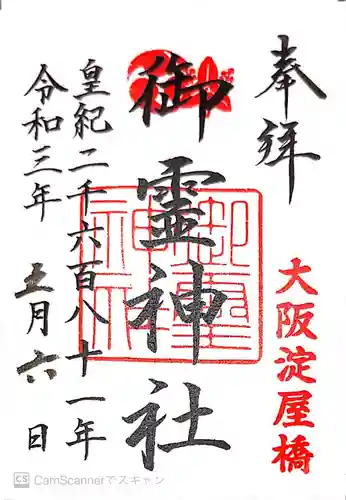 奉拝
大阪淀屋橋
御霊神社
皇紀二千六百八十一年
令和三年 五月六日
CS CamScannerでスキャン